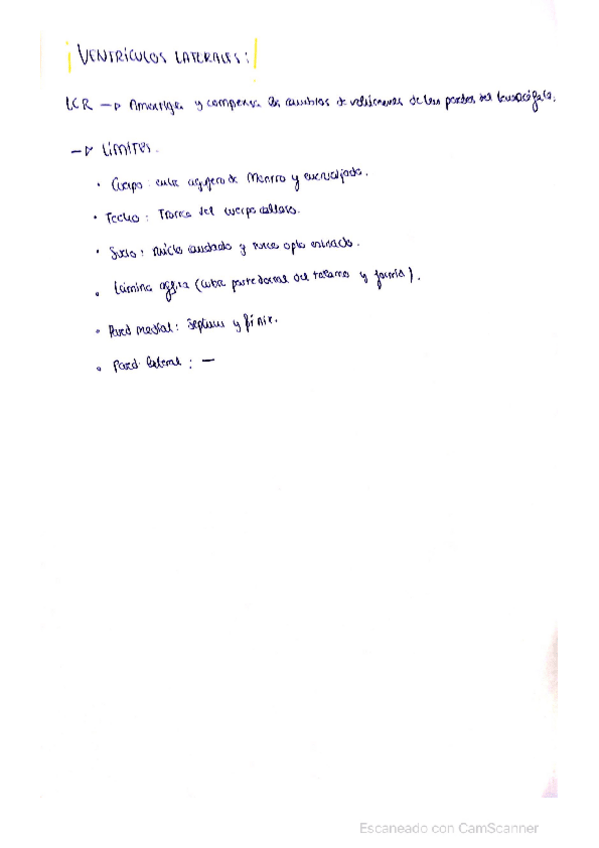 ¡VENTRÍCULOS LATERALES:!
LCR → Amortigua y compensa los cambios de volúmenes de las partes del
→ LÍMITES.
• Cuerpo: entre agujero de Monro y encrucijada.
• Techo: Tronco del cuerpo calloso.
• Suelo: núcleo caudado y surco opto estriado.
• Lámina (cubre parte dorsal del tálamo y
• Pared medial: Septum y fórnix.
• Pared lateral: —
Escaneado con CamScanner